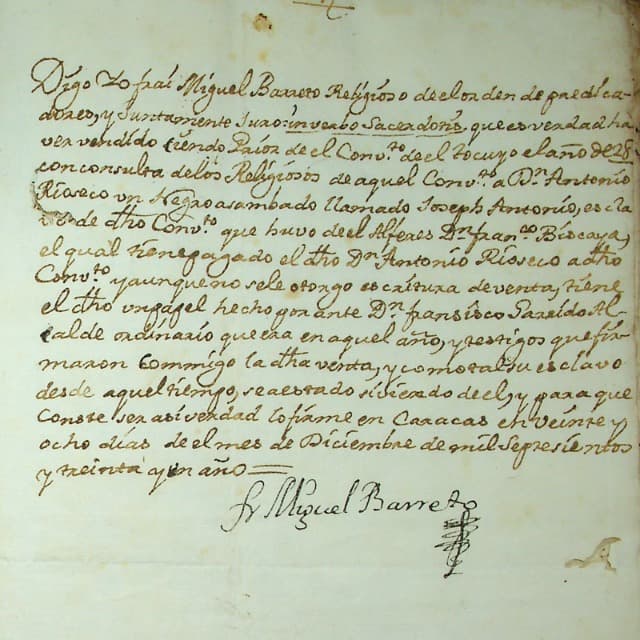 Digo Yo frai Miguel Barreto Religioso de el orden de predica
dores, y Juntamente Juro in verbo Sacerdotis, que es verdad ha
ver vendido siendo Prior de el Conv.to de el tocuyo el año de 28
con consulta de los Religiosos de aquel Conv.to a Dn Antonio
Rioseco un Negro asambado llamado Joseph Antonio, escla
vo de dho Conv.to que huvo de el Alferes Dn fran.co Biscaya,
el qual tiene pagado el dho Dn Antonio Rioseco a dho
Conv.to y aunque no se le otorgo escritura de venta, tiene
el dho un papel hecho por ante Dn fransisco Garsido Al
calde ordinario que era en aquel año, y testigos que fir
maron Commigo la dha venta, y como tal su esclavo
desde aquel tiempo, se a estado sirviendo de el, y para que
Conste ser asi verdad lo firme en Caracas en veinte y
ocho dias de el mes de Diciembre de mil Sepresientos
y treinta y un año
fr Miguel Barreto